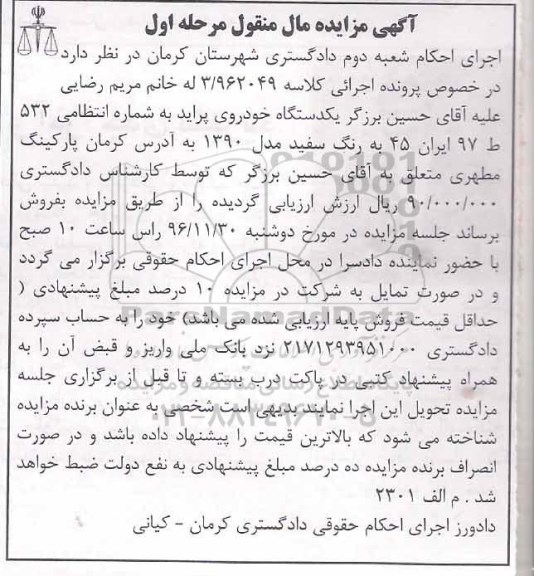 آگهی مزایده مال منقول مرحله اول
اجرای احکام شعبه دوم دادگستری شهرستان کرمان در نظر دارد
در خصوص پرونده اجرائی کلاسه ۳/۹۶۲۰۴۹ له خانم مریم رضایی
علیه آقای حسین برزگر یکدستگاه خودروی پراید به شماره انتظامی ۵۳۲
ط ۹۷ ایران ۴۵ به رنگ سفید مدل ۱۳۹۰ به آدرس کرمان پارکینگ
مطهری متعلق به آقای حسین برزگر که توسط کارشناس دادگستری
۹۰/۰۰۰/۰۰۰ ریال ارزش ارزیابی گردیده را از طریق مزایده بفروش
برساند جلسه مزایده در مورخ دوشنبه ۹۶/۱۱/۳۰ راس ساعت ۱۰ صبح
با حضور نماینده دادسرا در محل اجرای احکام حقوقی برگزار می گردد
و در صورت تمایل به شرکت در مزایده ۱۰ درصد مبلغ پیشنهادی (
حداقل قیمت فروش پایه ارزیابی شده می باشد) خود را به حساب سپرده
دادگستری ۲۱۷۱۲۹۳۹۵۱۰۰۰ نزد بانک ملی واریز و قبض آن را به
همراه پیشنهاد کتبی در پاکت درب بسته و تا قبل از برگزاری جلسه
مزایده تحویل این اجرا نمایند بدیهی است شخصی به عنوان برنده مزایده
شناخته می شود که بالاترین قیمت را پیشنهاد داده باشد و در صورت
انصراف برنده مزایده ده درصد مبلغ پیشنهادی به نفع دولت ضبط خواهد
شد . م الف ۲۳۰۱
دادورز اجرای احکام حقوقی دادگستری کرمان - کیانی
ParsNamadData